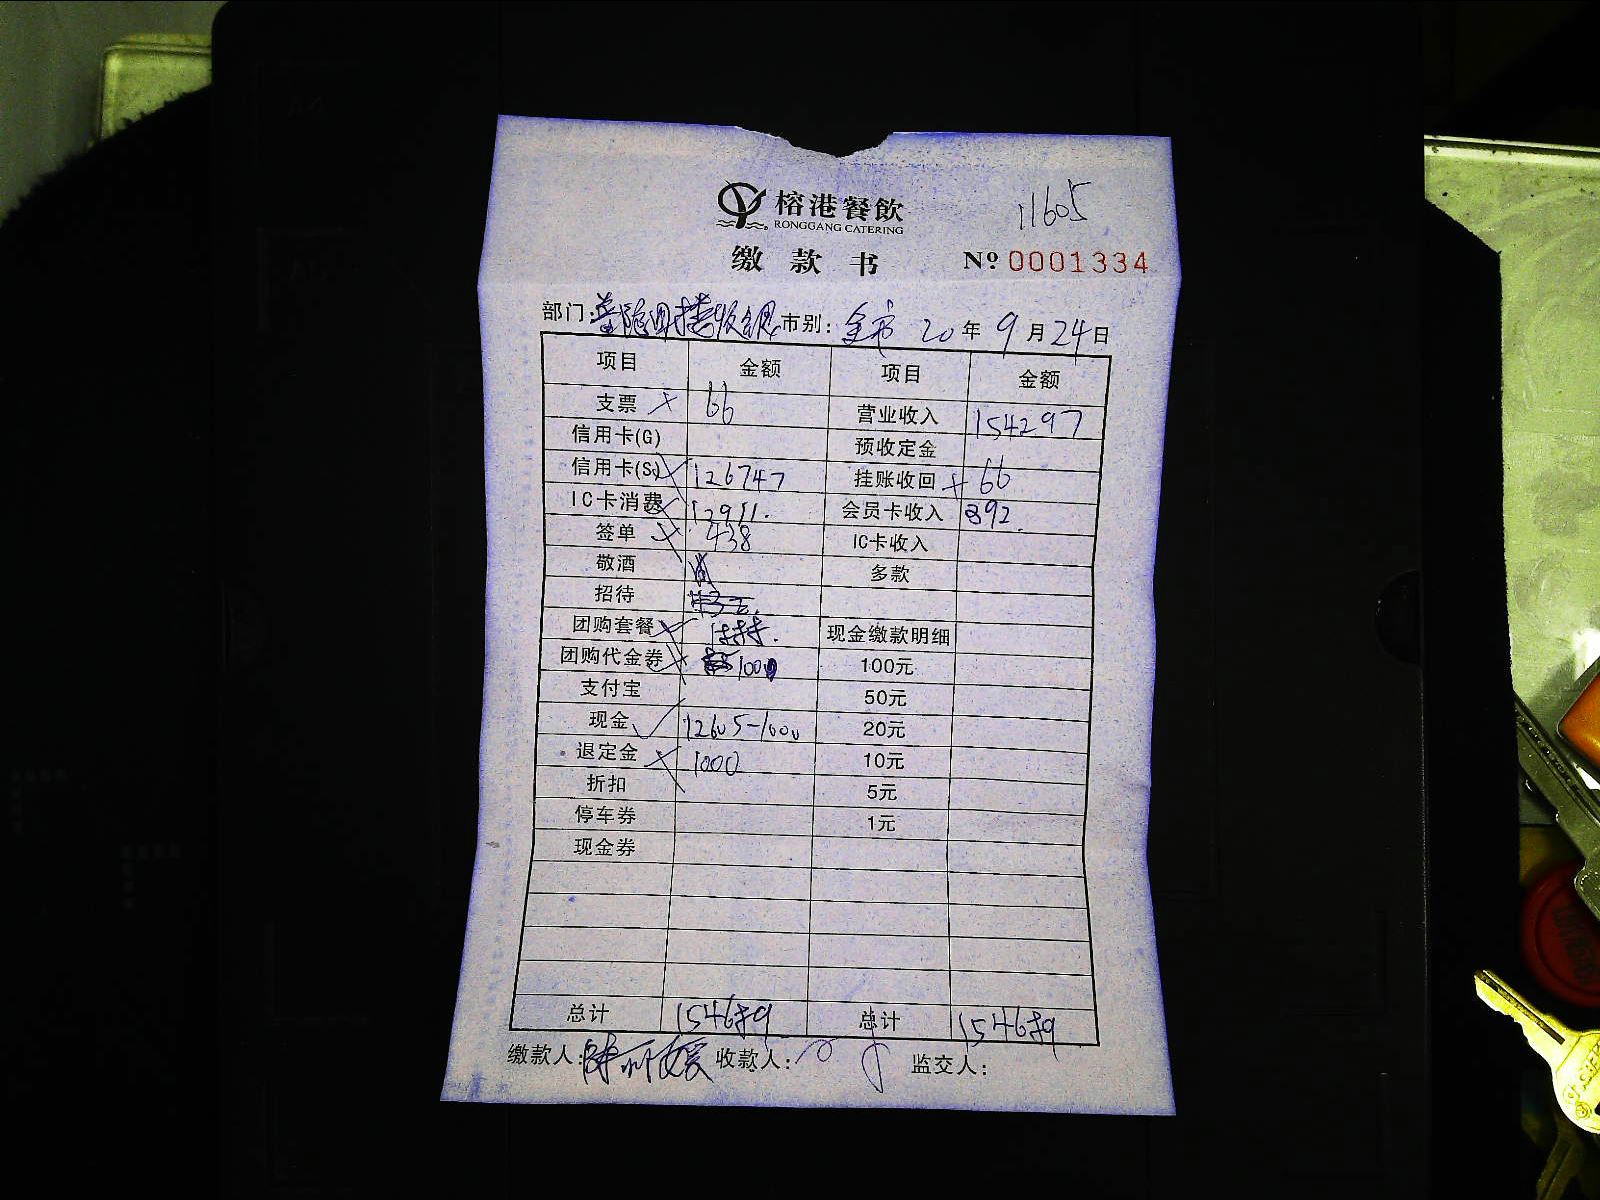 榕港餐飲 11605
RONGGANG CATERING
缴 款 书 Nº 0001334
部门: 市别: 全市 20 年 9 月 24 日
项目 金额 项目 金额
支票 66 营业收入 154297
信用卡(G) 预收定金
信用卡(S) 126747 挂账收回 66
IC卡消费 12911. 会员卡收入 392.
签单 438 IC卡收入
敬酒 多款
招待
团购套餐 现金缴款明细
团购代金券 1000 100元
支付宝 50元
现金 12605-1000 20元
退定金 1000 10元
折扣 5元
停车券 1元
现金券
总计 总计
缴款人: 收款人: 监交人: